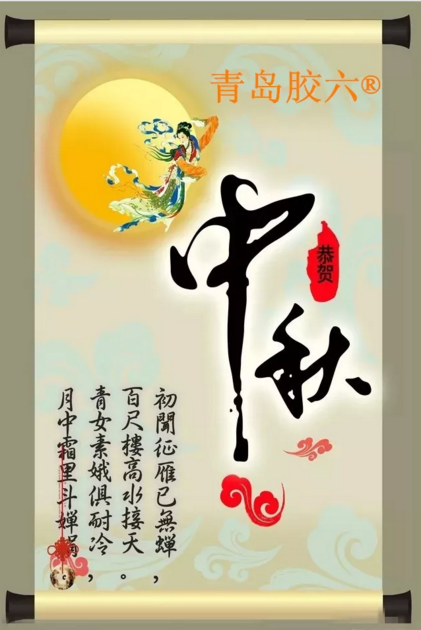 青岛胶六®
中秋
恭贺
初聞征雁已無蟬，
百尺樓高水接天。
青女素娥俱耐冷，
月中霜里斗嬋娟